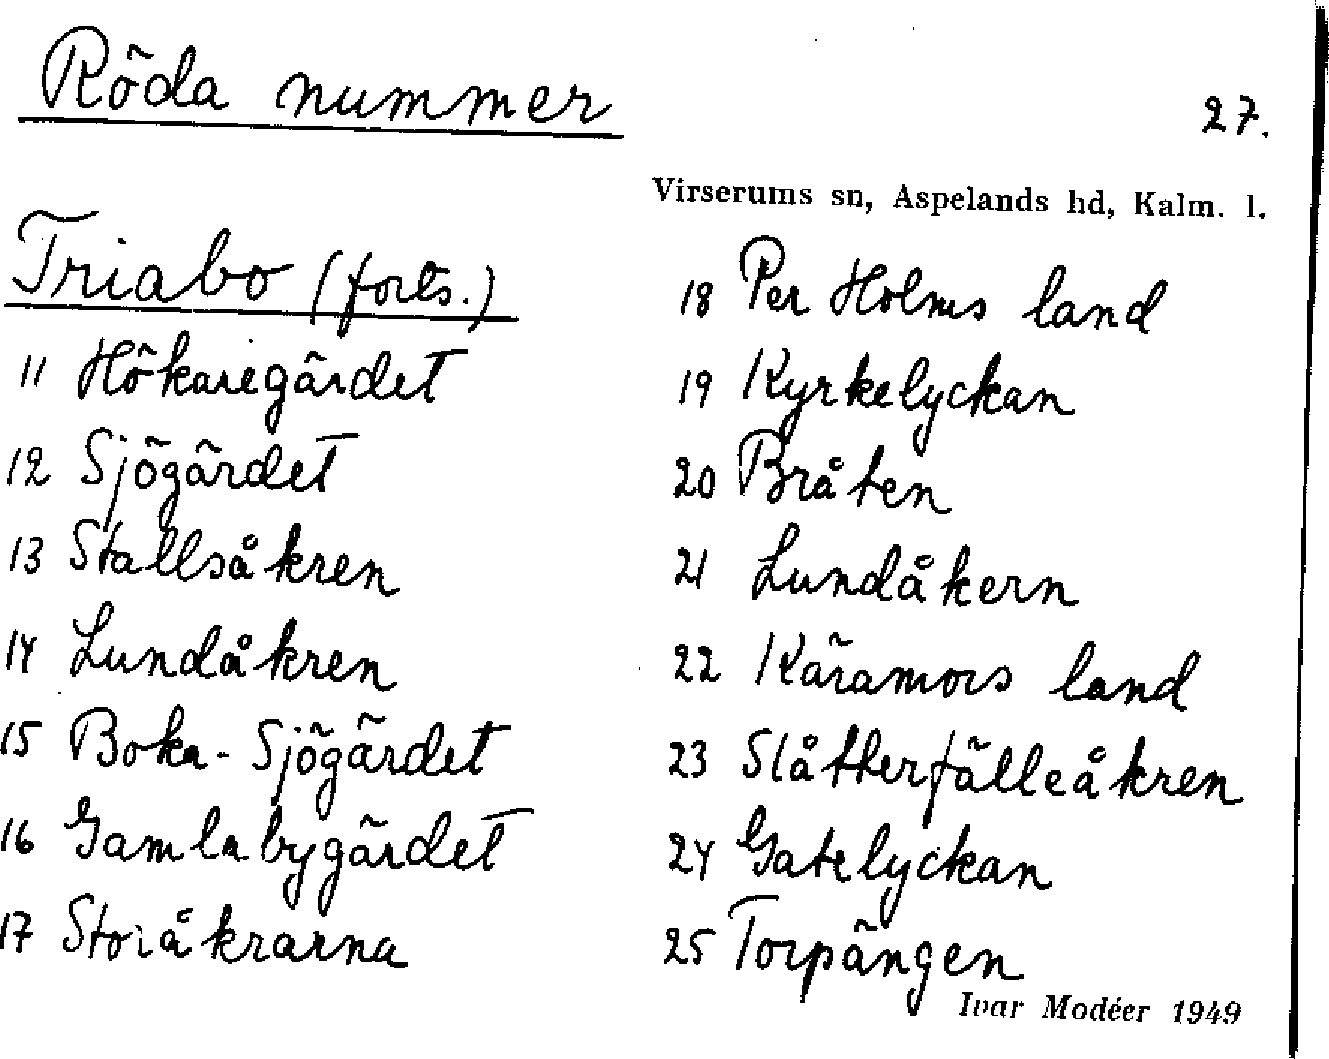 Röda nummer
27.
Virserums sn, Aspelands hd, Kalm. l.
Triabo (forts.)
11 Hökaregärdet
12 Sjögärdet
13 Stallsåkren
14 Lundåkren
15 Boka-Sjögärdet
16 Gamlabygärdet
17 Storåkrarna
18 Per Holms land
19 Kyrkelyckan
20 Bråten
21 Lundåkern
22 Käramors land
23 Slåtterfälleåkren
24 Gatelyckan
25 Torpängen
Ivar Modéer 1949